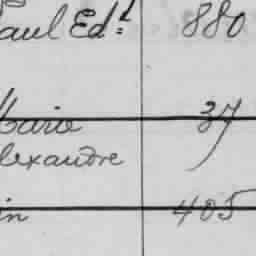 aul Ed.d 880
Marie 37
lexandre
in 405